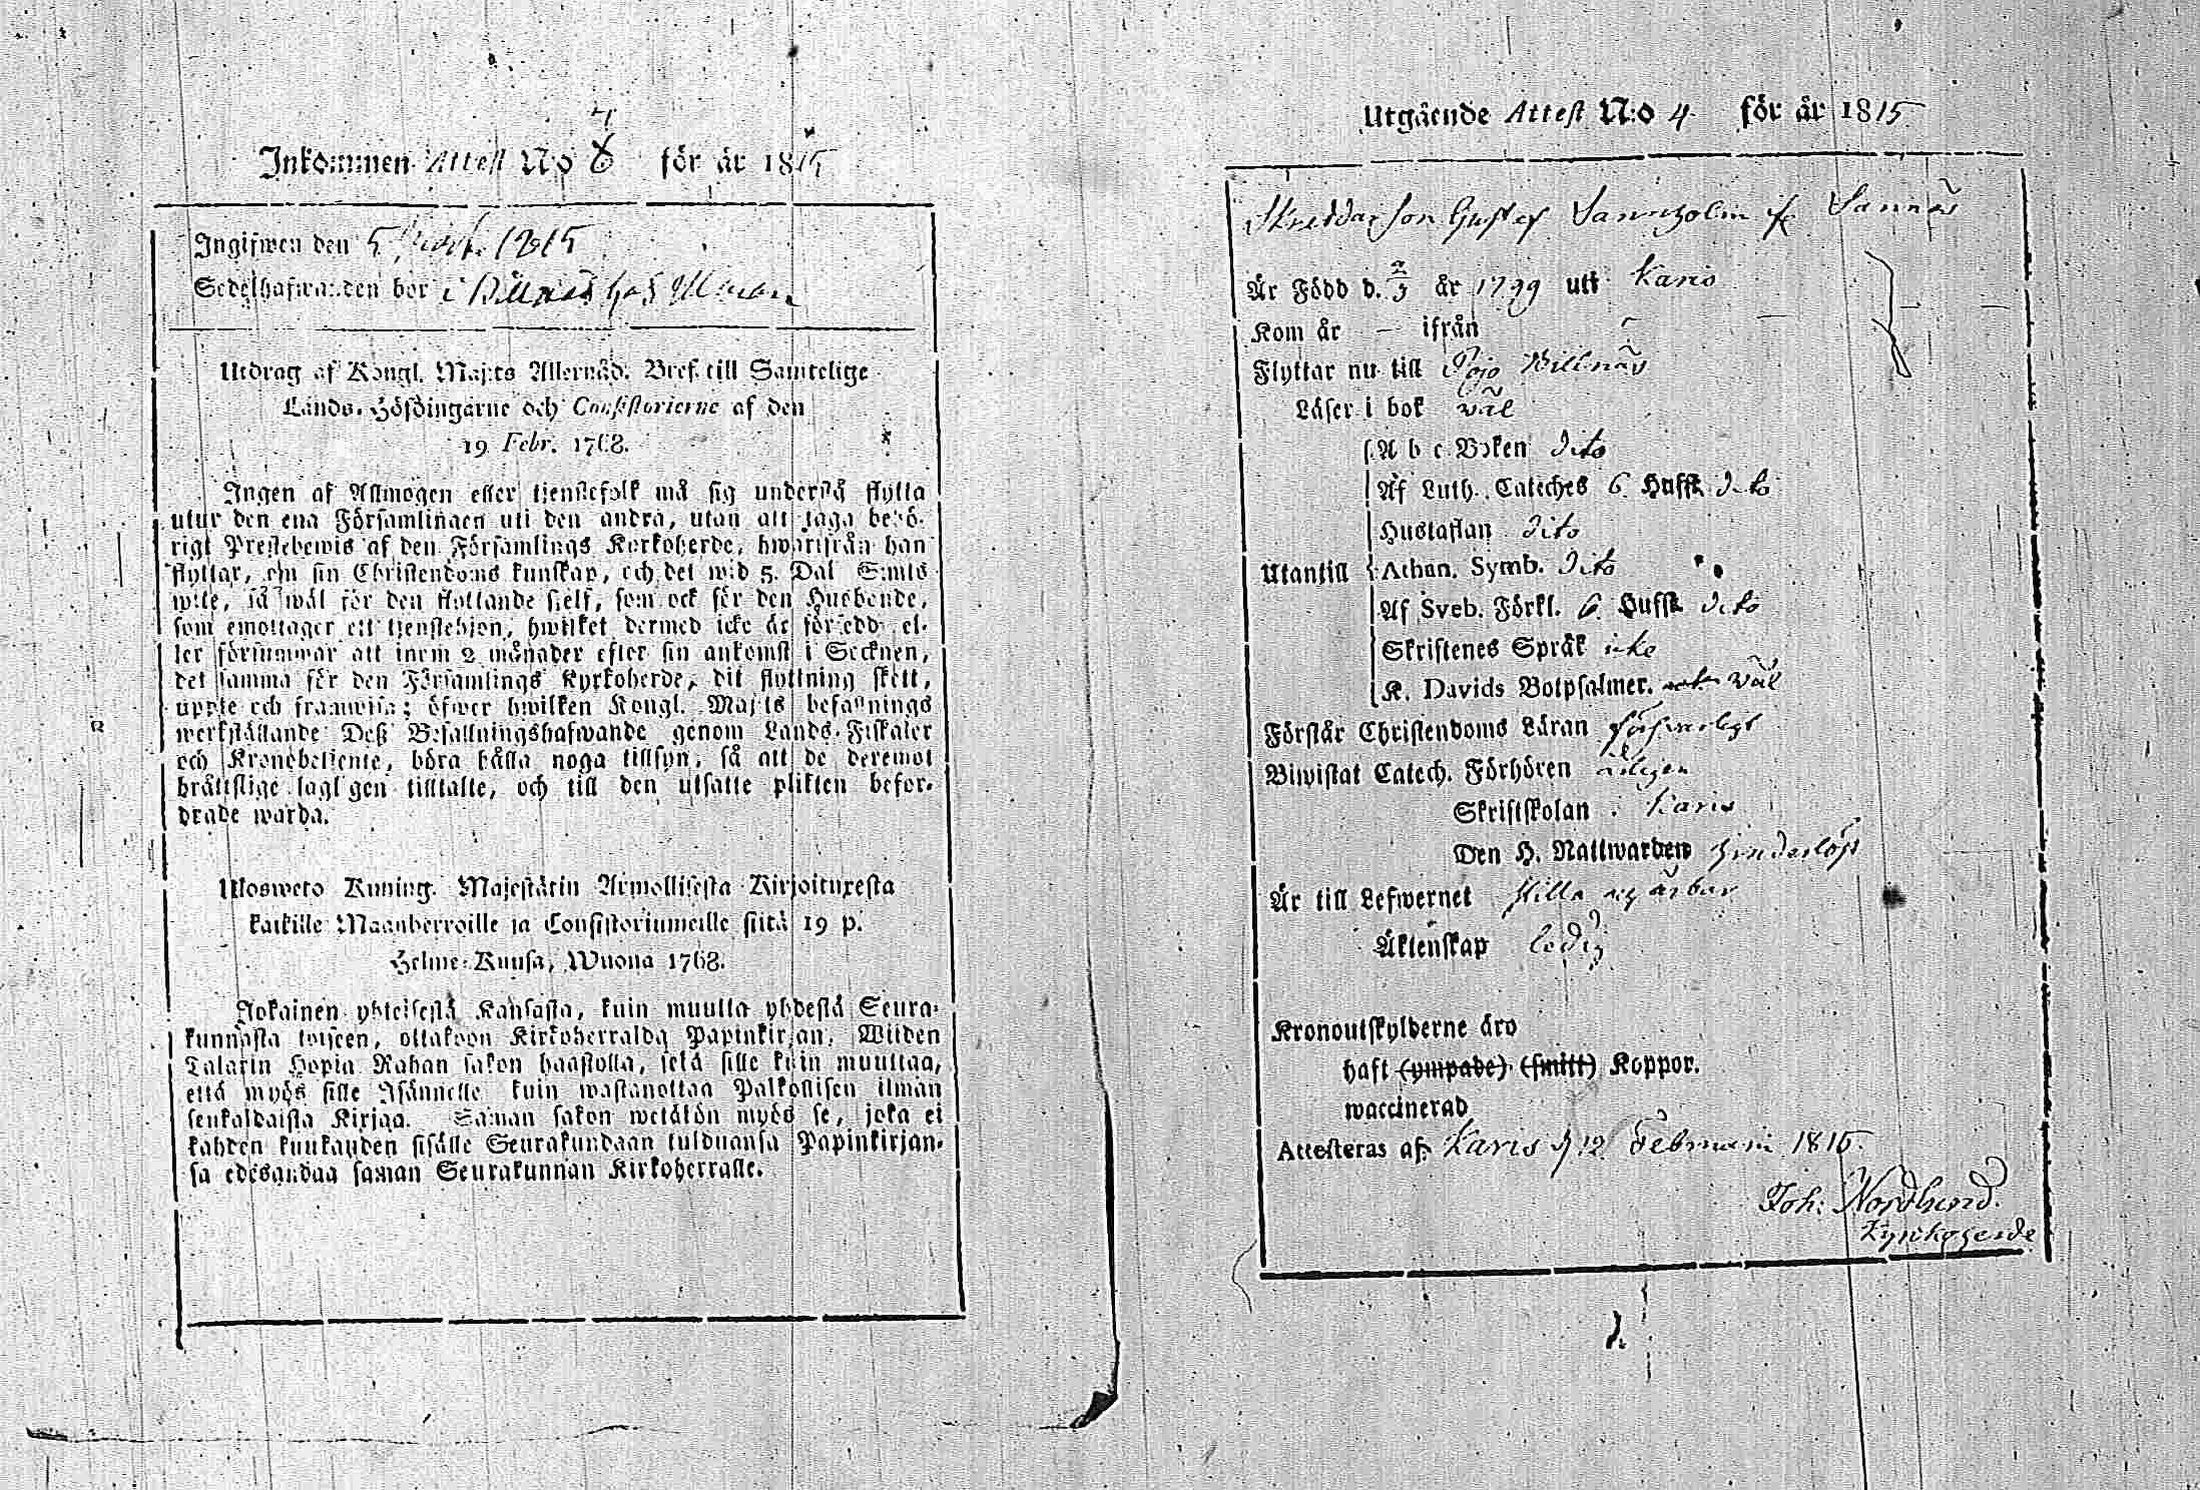 Inkommen Attest N:o 7 för år 1815
Ingifwen den 5 1815
Sedelhafwanden bor i Billnäs hos
Utdrag af Kongl. Maj:ts Allernåd. Bref till Samtelige
Lands-Höfdingarne och Consistorierne af den
19 Febr. 1768.
Ingen af Allmogen eller tjenstefolk må sig understå flytta
utur den ena Församlingen uti den andra, utan att taga behö-
rigt Prestebewis af den Församlings Kyrkoherde, hwarifrån han
flyttar, om sin Christendoms kunskap, och det wid 5. Dal S:mts
wite, så wäl för den flyttande sielf, som ock för den Husbonde,
som emottager ett tjenstehjon, hwilket dermed icke är försedd, el-
ler försummar att inom 2 månader efter sin ankomst i Socknen,
det samma för den Församlings Kyrkoherde, dit flyttning skett,
uppte och framwisa; öfwer hwilken Kongl. Maj:ts befallnings
werkställande Deß Befallningshafwande genom Lands-Fiskaler
och Kronobetjente, böra hålla noga tillsyn, så att de deremot
bråttslige lagligen tilltalte, och till den utsatte plikten befor-
drade warda.
Ulosweto Kuning. Majestätin Armollisesta Kirjoituxesta
kaikille Maanherroille ja Consistoriumeille siitä 19 p.
Helme-Kuusa, Wuona 1768.
Jokainen yhteisestä Kansasta, kuin muutta yhdestä Seura-
kunnasta toiseen, ottakoon Kirkoherralda Papinkirjan, Wiiden
Talarin Hopia Rahan sakon haastolla, sekä sille kuin muuttaa,
että myös sille Isännelle kuin wastanottaa Palkollisen ilman
senkaldaista Kirjaa. Saman sakon wetätön myös se, joka ei
kahden kuukauden sisälle Seurakundaan tulduansa Papinkirjan-
sa edesandaa saman Seurakunnan Kirkoherralle.
Utgående Attest N:o 4 för år 1815
Skreddar son Gustaf Sannholm fr Sannäs
Är Född d. 2/3 år 1799 uti Karis
Kom år – ifrån
Flyttar nu till Pojo Billnäs
Läser i bok wäl
A b c Boken dito
Af Luth. Cateches 6. Hufst. dito
Hustaflan dito
Utantill Athan. Symb. dito
Af Sveb. Förkl. 6. Hufst. dito
Skriftenes Språk icke
K. Davids Botpsalmer. wäl
Förstår Christendoms Läran förswarligt
Biwistat Catech. Förhören årligen
Skriftskolan. Karis
Den H. Nattwarden hinderlöst
Är till Lefwernet stilla og ärbar
Äktenskap ledig
Kronoutskylderne äro
haft (ympade) (smitt) Koppor.
waccinerad
Attesteras af: Karis d 12 Februarii 1815.
Joh: Nordlund.
Kyrkoherde